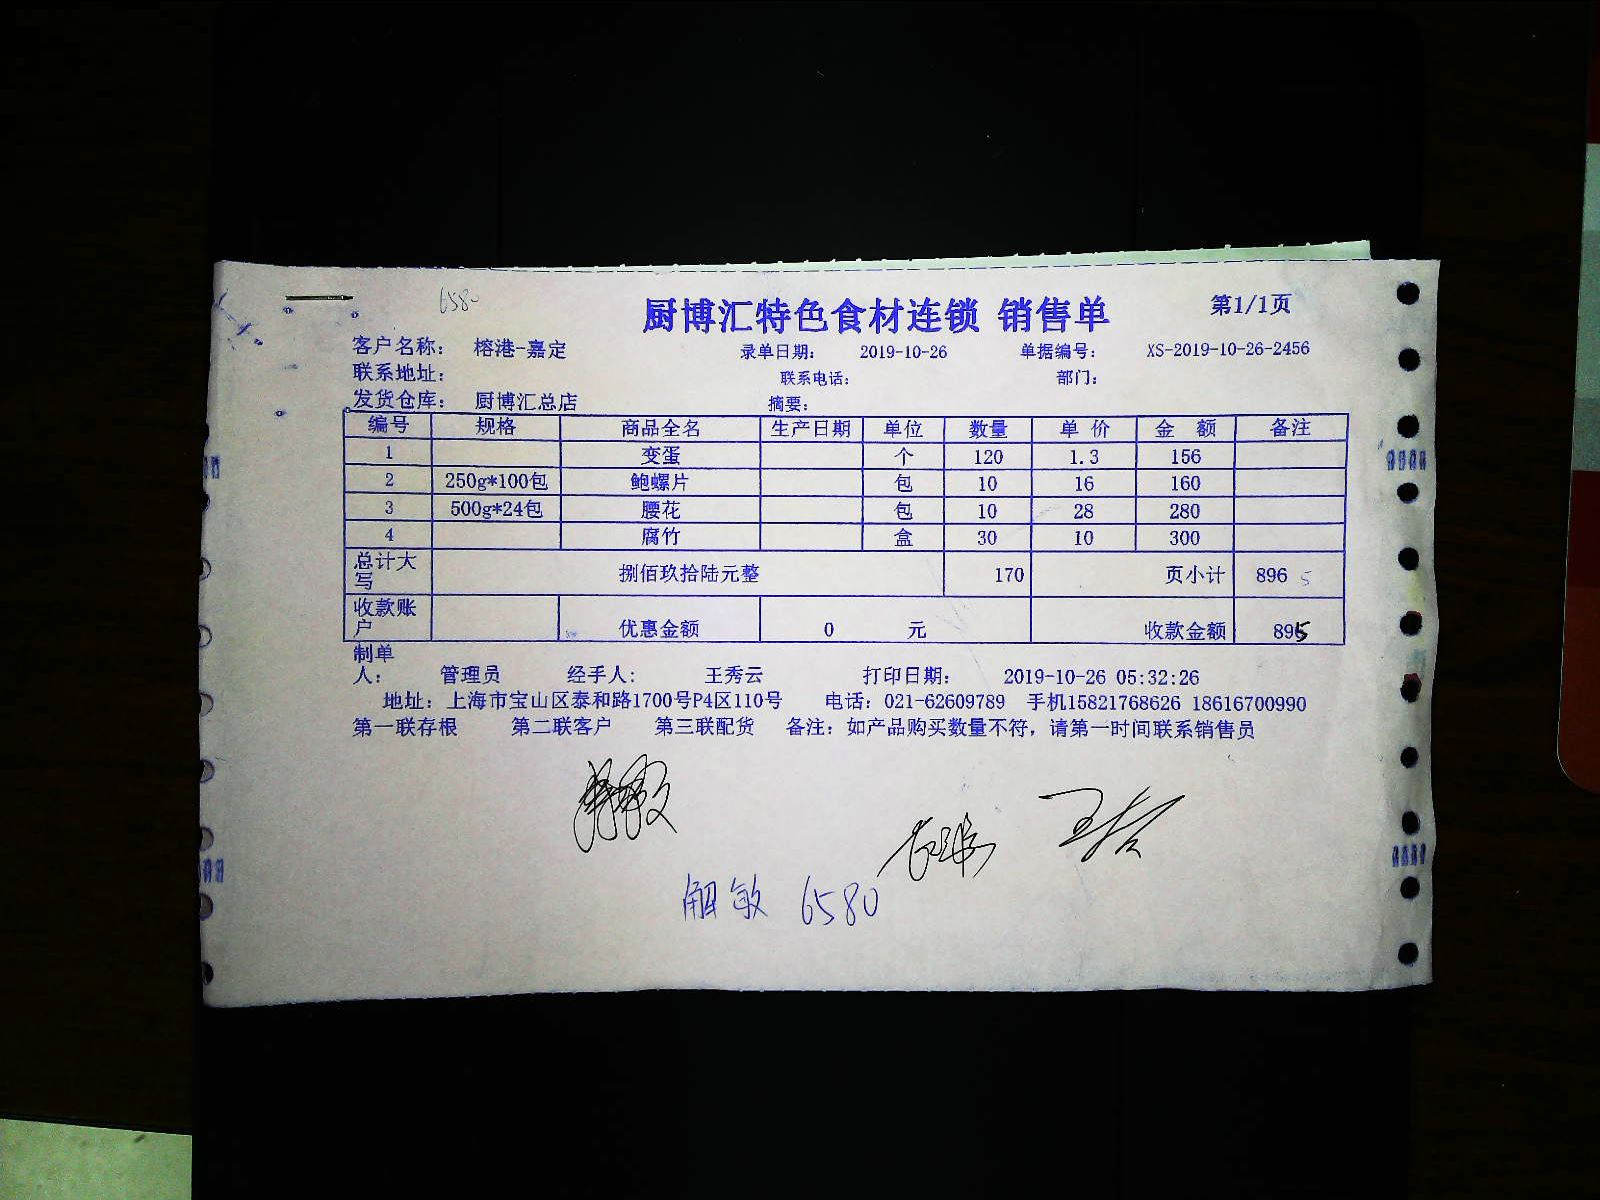 6580
厨博汇特色食材连锁 销售单 第1/1页
客户名称： 榕港-嘉定 录单日期： 2019-10-26 单据编号： XS-2019-10-26-2456
联系地址： 联系电话： 部门：
发货仓库： 厨博汇总店 摘要：
编号 规格 商品全名 生产日期 单位 数量 单 价 金 额 备注
1 变蛋 个 120 1.3 156
2 250g*100包 鲍螺片 包 10 16 160
3 500g*24包 腰花 包 10 28 280
4 腐竹 盒 30 10 300
总计大写 捌佰玖拾陆元整 170 页小计 896 5
收款账户 优惠金额 0 元 收款金额 895
制单人： 管理员 经手人： 王秀云 打印日期： 2019-10-26 05:32:26
地址：上海市宝山区泰和路1700号P4区110号 电话：021-62609789 手机15821768626 18616700990
第一联存根 第二联客户 第三联配货 备注：如产品购买数量不符，请第一时间联系销售员
解敏 6580